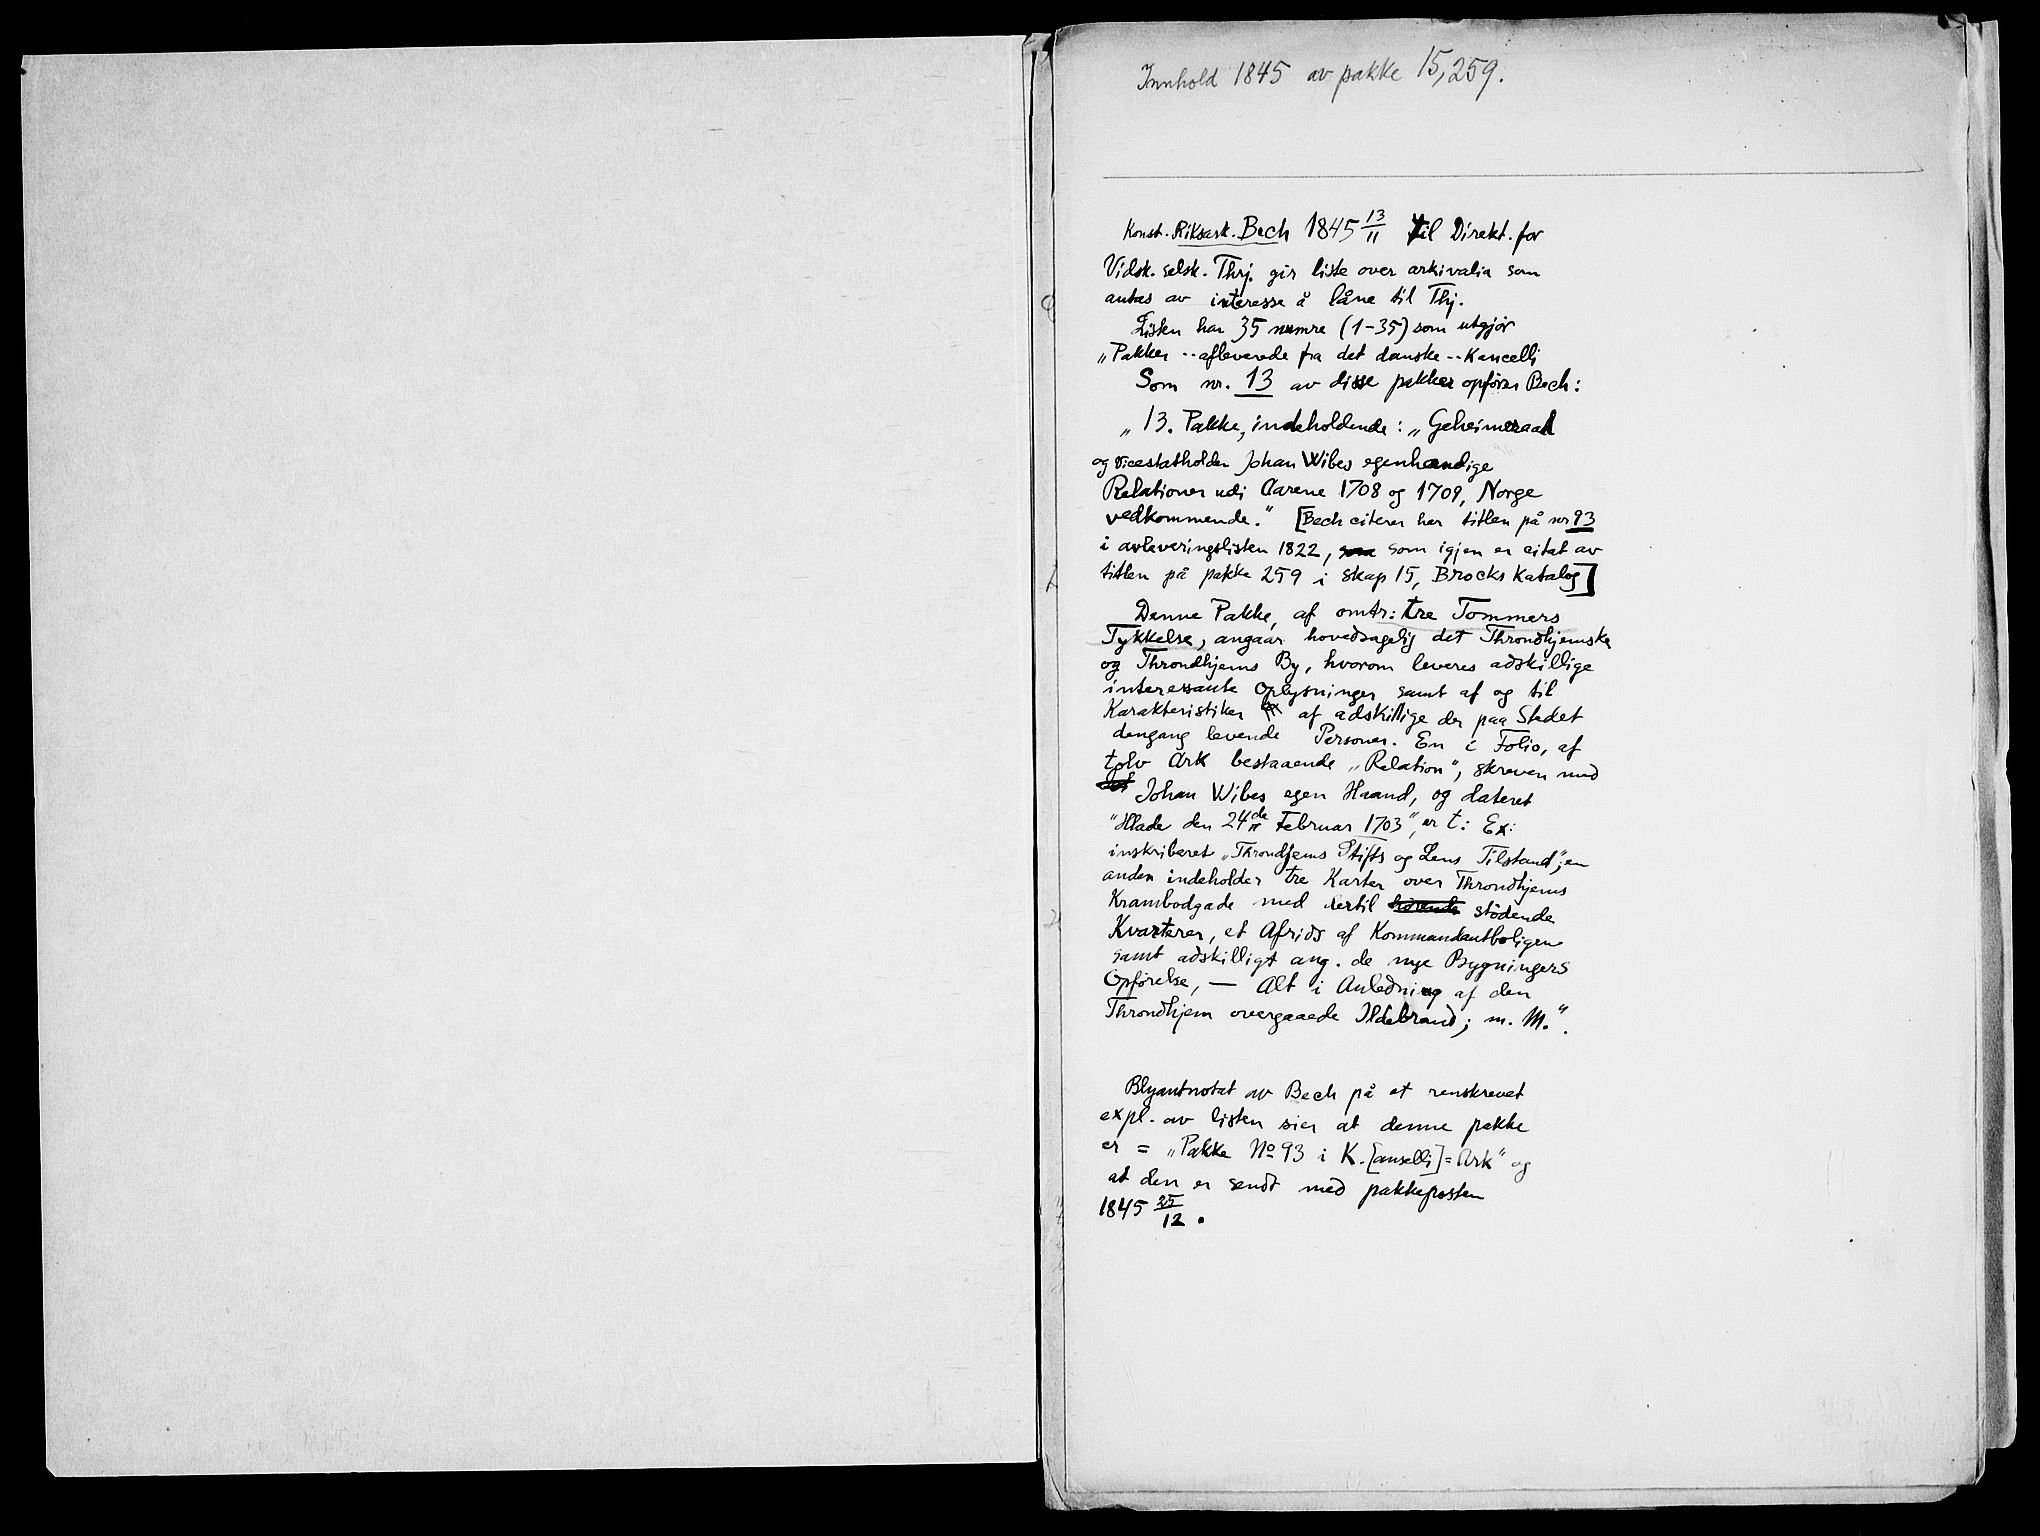 Innhold 1845 av pakke 15,259.
Konst. Riksark. Bech 1845 13/11 til Direkt. for
Vidsk. selsk. Thrj. gir liste over arkivalia som
antas av interesse å låne til Thj.
Listen har 35 numre (1-35) som utgjör
„Pakker -- afleverede fra det danske -- Kancelli
Som nr. 13 av disse pakker opförer Bech:
„13. Pakke, indeholdende: „Geheimeraad
og Vicestatholder Johan Wibes egenhændige
Relationer udi Aarene 1708 og 1709, Norge
vedkommende." [Bech citerer her titlen på nr 93
i avleveringslisten 1822, som igjen er citat av
titlen på pakke 259 i skap 15, Brocks Katalog]
Denne Pakke, af omtr: tre Tommers
Tykkelse, angaar hovedsagelig det Throndhjemske
og Throndhjems By, hvorom leveres adskillige
interessante Oplysninger samt af og til
Karakteristiker af adskillige der paa Stedet
dengang levende Personer. En i Folio, af
tolv Ark bestaaende „Relation", skreven med
Johan Wibes egen Haand, og dateret
"Hlade den 24de Februar 1703", er t: Ex:
inskriberet „Throndhjems Stifts og Lens Tilstand"; en
anden indeholder tre Karter over Throndhjems
Krambodgade med dertil stödende
Kvarterer, et Afrids af Kommandantboligen
samt adskilligt ang. de nye Bygningers
Opförelse, — Alt i Anledning af den
Throndhjem overgaaede Ildebrand; m. M.".
Blyantnotat av Bech på et renskrevet
expl. av listen sier at denne pakke
er = „Pakke No 93 i K.[anselli]=Ark" og
at den er sendt med pakkeposten
1845 25/12.